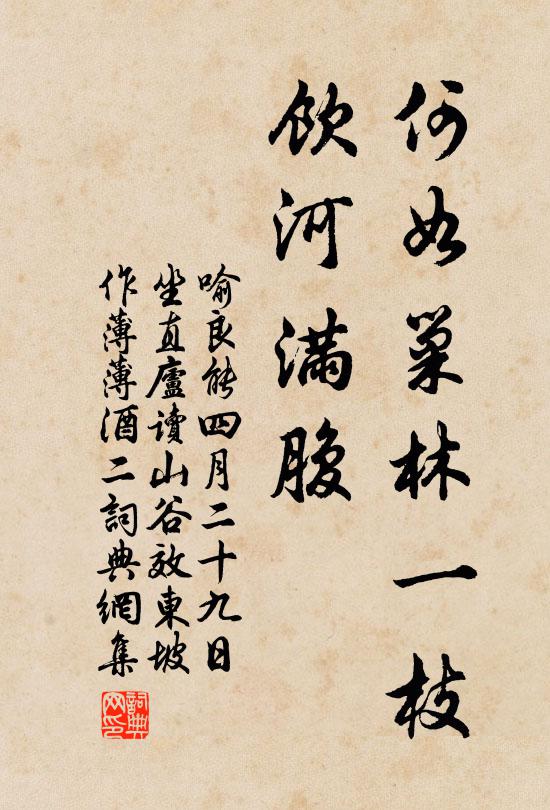 何如巢林一枝
飲河滿腹
喻良能四月二十九日
坐直廬讀山谷效東坡
作薄薄酒二詞典網集
詞典
网印